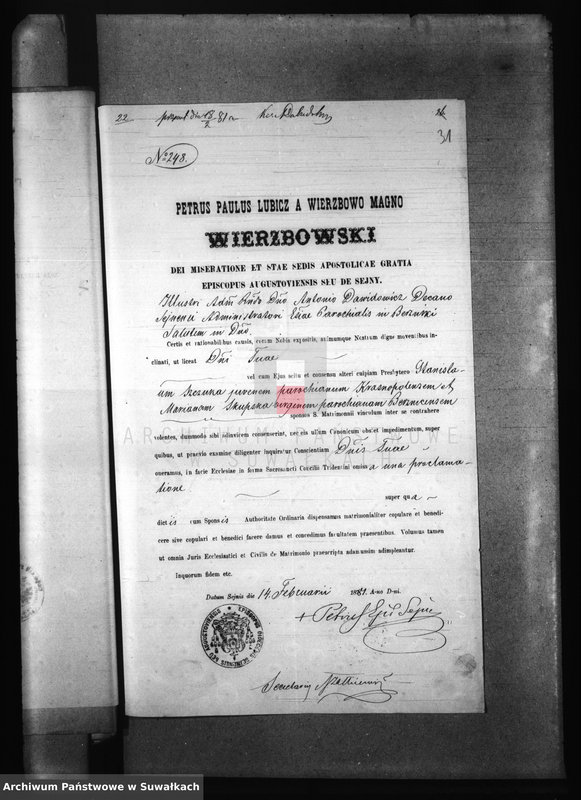 22 31
No 248.
PETRUS PAULUS LUBICZ A WIERZBOWO MAGNO
WIERZBOWSKI
DEI MISERATIONE ET STAE SEDIS APOSTOLICAE GRATIA
EPISCOPUS AUGUSTOVIENSIS SEU DE SEJNY.
Illustri Adm Rndo Dno Antonio Dawidowicz Decano
Sejnensi Administratori Eliae Parochialis in Berzniki
Salutem in Dno.
Certis et rationabilibus causis, coram Nobis expositis, animumque Nostrum digne moventibus in-
clinati, ut liceat Dni Tuae
vel cum Ejus scitu et consensu alteri cuipiam Presbytero Stanisla-
um juvenem parochianum Krasnopolensem et
Mariannam Skupska virginem parochianam Berznicensem
sponsos S. Matrimonii vinculum inter se contrahere
volentes, dummodo sibi adinvicem consenserint, nec eis ullum Canonicum obstet impedimentum, super
quibus, ut praevio examine diligenter inquiratur Conscientiam Dnis Tuae
oneramus, in facie Ecclesiae in forma Sacrosancti Concilii Tridentini omissa una proclama-
tione
super qua
dictis cum Sponsis Authoritate Ordinaria dispensamus matrimonialiter copulare et benedi-
cere sive copulari et benedici facere damus et concedimus facultatem praesentibus. Volumus tamen
ut omnia Juris Ecclesiastici et Civilis de Matrimonio praescripta adamussim adimpleantur.
Inquorum fidem etc.
Datum Sejnis die 14 Februarii 1881. A-no D-ni.
+ Petrus Eps Sejn
Secretarius
ARCHIWUM PAŃSTWOWE
W SUWAŁKACH
Archiwum Państwowe w Suwałkach